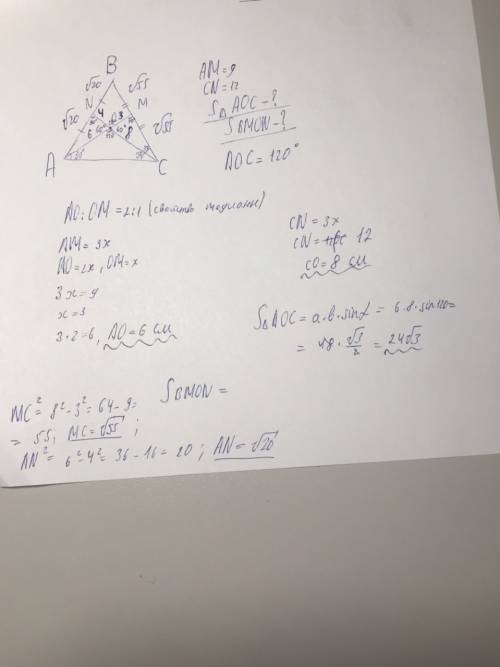 B
√20
√55
N
4
O
3
M
√20
6
8
√55
A
C
AM = 9
CN = 12
S△AOC - ?
S BMON - ?
AOC = 120°
AO : OM = 2:1 (свойство медианы)
AM = 3x
AO = 2x, OM = x
3x = 9
x = 3
3·2 = 6, AO = 6 см
CN = 3x
CN = 12
CO = 8 см
S△AOC = a·b·sinα = 6·8·sin120 =
= 48·√3/2 = 24√3
MC² = 8² - 3² = 64 - 9 =
= 55; MC = √55;
AN² = 6² - 4² = 36 - 16 = 20; AN = √20
S BMON =